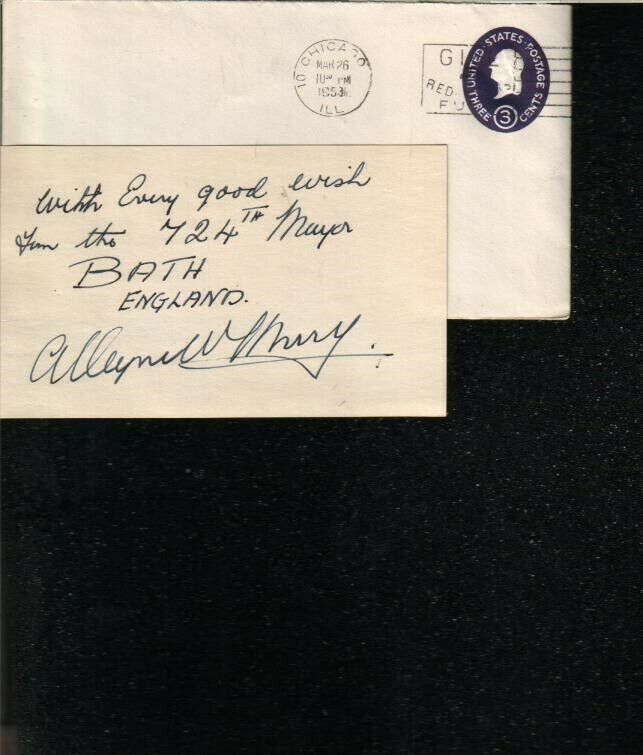 10 CHICAGO
MAR 26
10 PM
1953
ILL
UNITED STATES POSTAGE
3
THREE CENTS
With Every good wish
from the 724TH Mayor
BATH
ENGLAND.